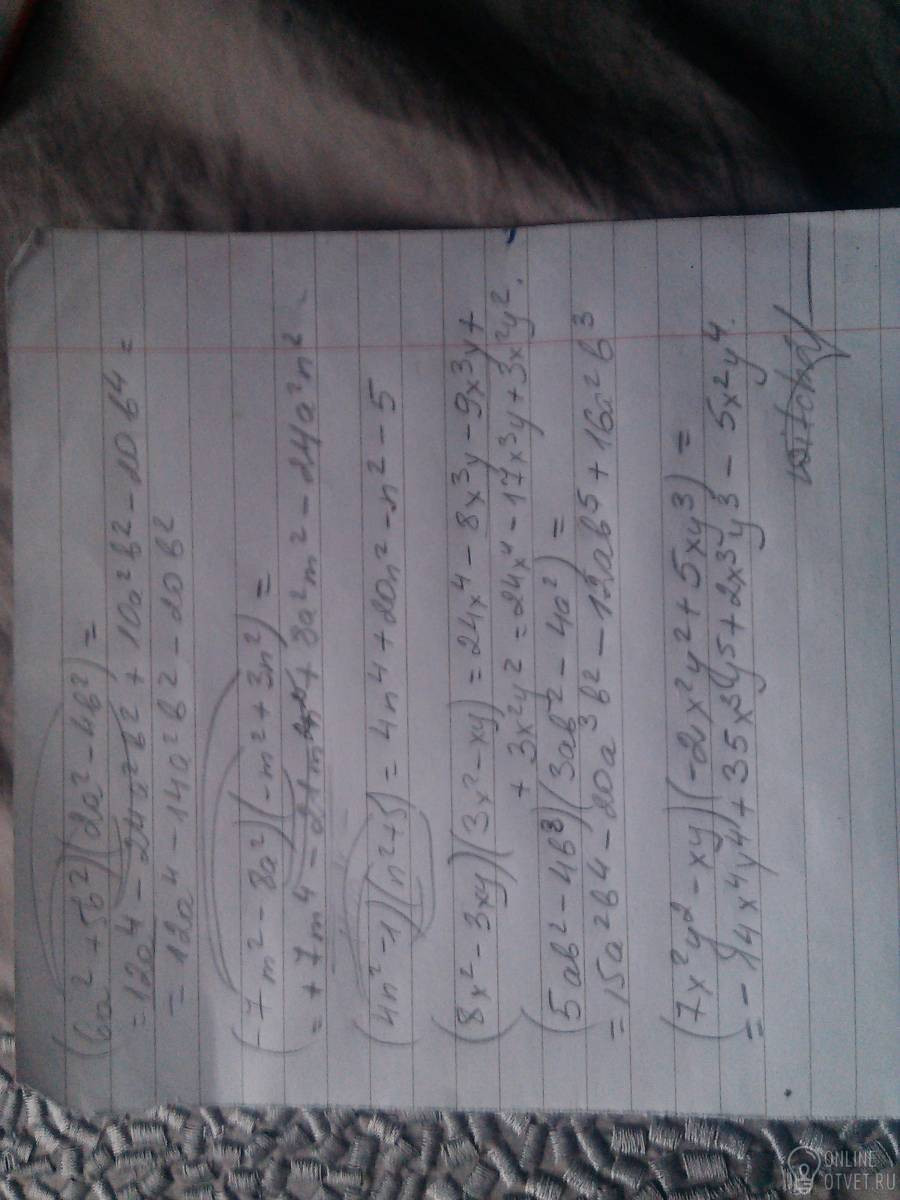 (6a² + 5b²)(2a² - 4b²) =
= 12a⁴ - 24a²b² + 10a²b² - 20b⁴ =
= 12a⁴ - 14a²b² - 20b²
(-7m² - 8a²)(-m² + 3n²) =
= +7m⁴ - + 8a²m² - 24a²n²
(4n² - 1)(n² + 5) = 4n⁴ + 20n² - n² - 5
(8x² - 3xy)(3x² - xy) = 24x⁴ - 8x³y - 9x³y +
+ 3x²y² = 24x⁴ - 17x³y + 3x²y².
(5ab² - 4b³)(3ab² - 4a²) =
= 15a²b⁴ - 20a³b² - 12ab⁵ + 16a²b³
(7x²y² - xy)(-2x²y² + 5xy³) =
= -14x⁴y⁴ + 35x³y⁵ + 2x³y³ - 5x²y⁴.
ONLINE
OTVET.RU